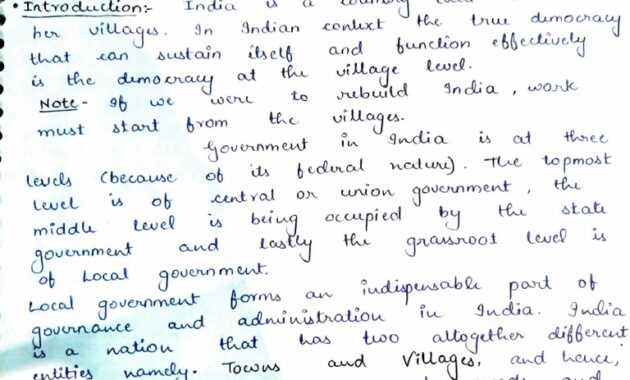 • Introduction:- India is a country
her villages. In Indian context the true democracy
that can sustain itself and function effectively
is the democracy at the village level.
Note - If we were to rebuild India, work
must start from the villages.
Government in India is at three
levels (because of its federal nature). The topmost
level is of central or union government, the
middle level is being occupied by the state
government and lastly the grassroot level is
of Local government.
Local government forms an indispensable part of
governance and administration in India. India
is a nation that has two altogether different
entities namely. Towns and Villages, and hence,
and